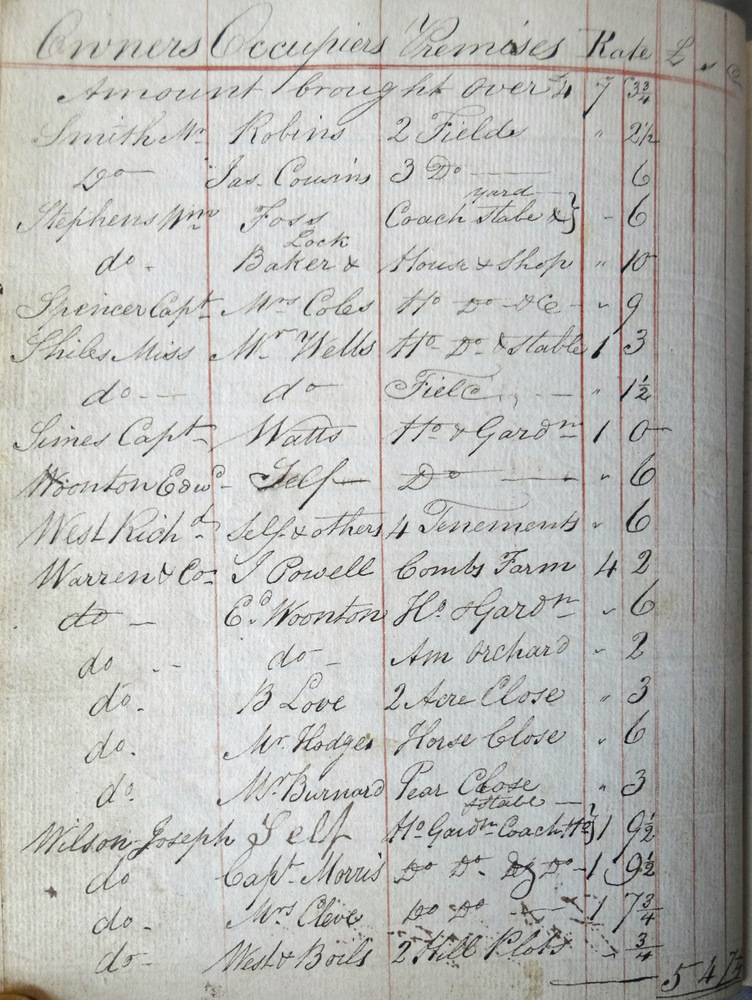 Owners Occupiers Premises Rate £ s d
Amount brought over 4 7 3¾
Smith Mr Robins 2 Fields " 2½
Do Jas. Cousins 3 Do 6
Stephens Wm Foss Coach stabe & yard } - 6
do. Baker & Lock House & Shop " 10
Spencer Capt Mrs Coles Ho Do &c - " 9
Shiles Miss Mr Wells Ho Do & Stable 1 3
do do Field " 1½
Simes Capt Watts Ho & Gardn 1 0
Woonton Edwd Self Do " 6
West Richd Self & others 4 Tenements " 6
Warren & Co J Powell Combs Farm 4 2
do Ed Woonton Ho & Gardn " 6
do do Am Orchard " 2
do. B Love 2 Acre Close " 3
do. Mr. Hodges Horse Close " 6
do. Mr Burnard Pear Close & stabe " 3
Wilson Joseph Self Ho Gardn Coach Ho } 1 9½
do Capt Morris Do Do Do Do - 1 9½
do. Mrs Cleve Do Do 1 7¾
do West & Boils 2 Hill Plots ¾
5 4 7¼